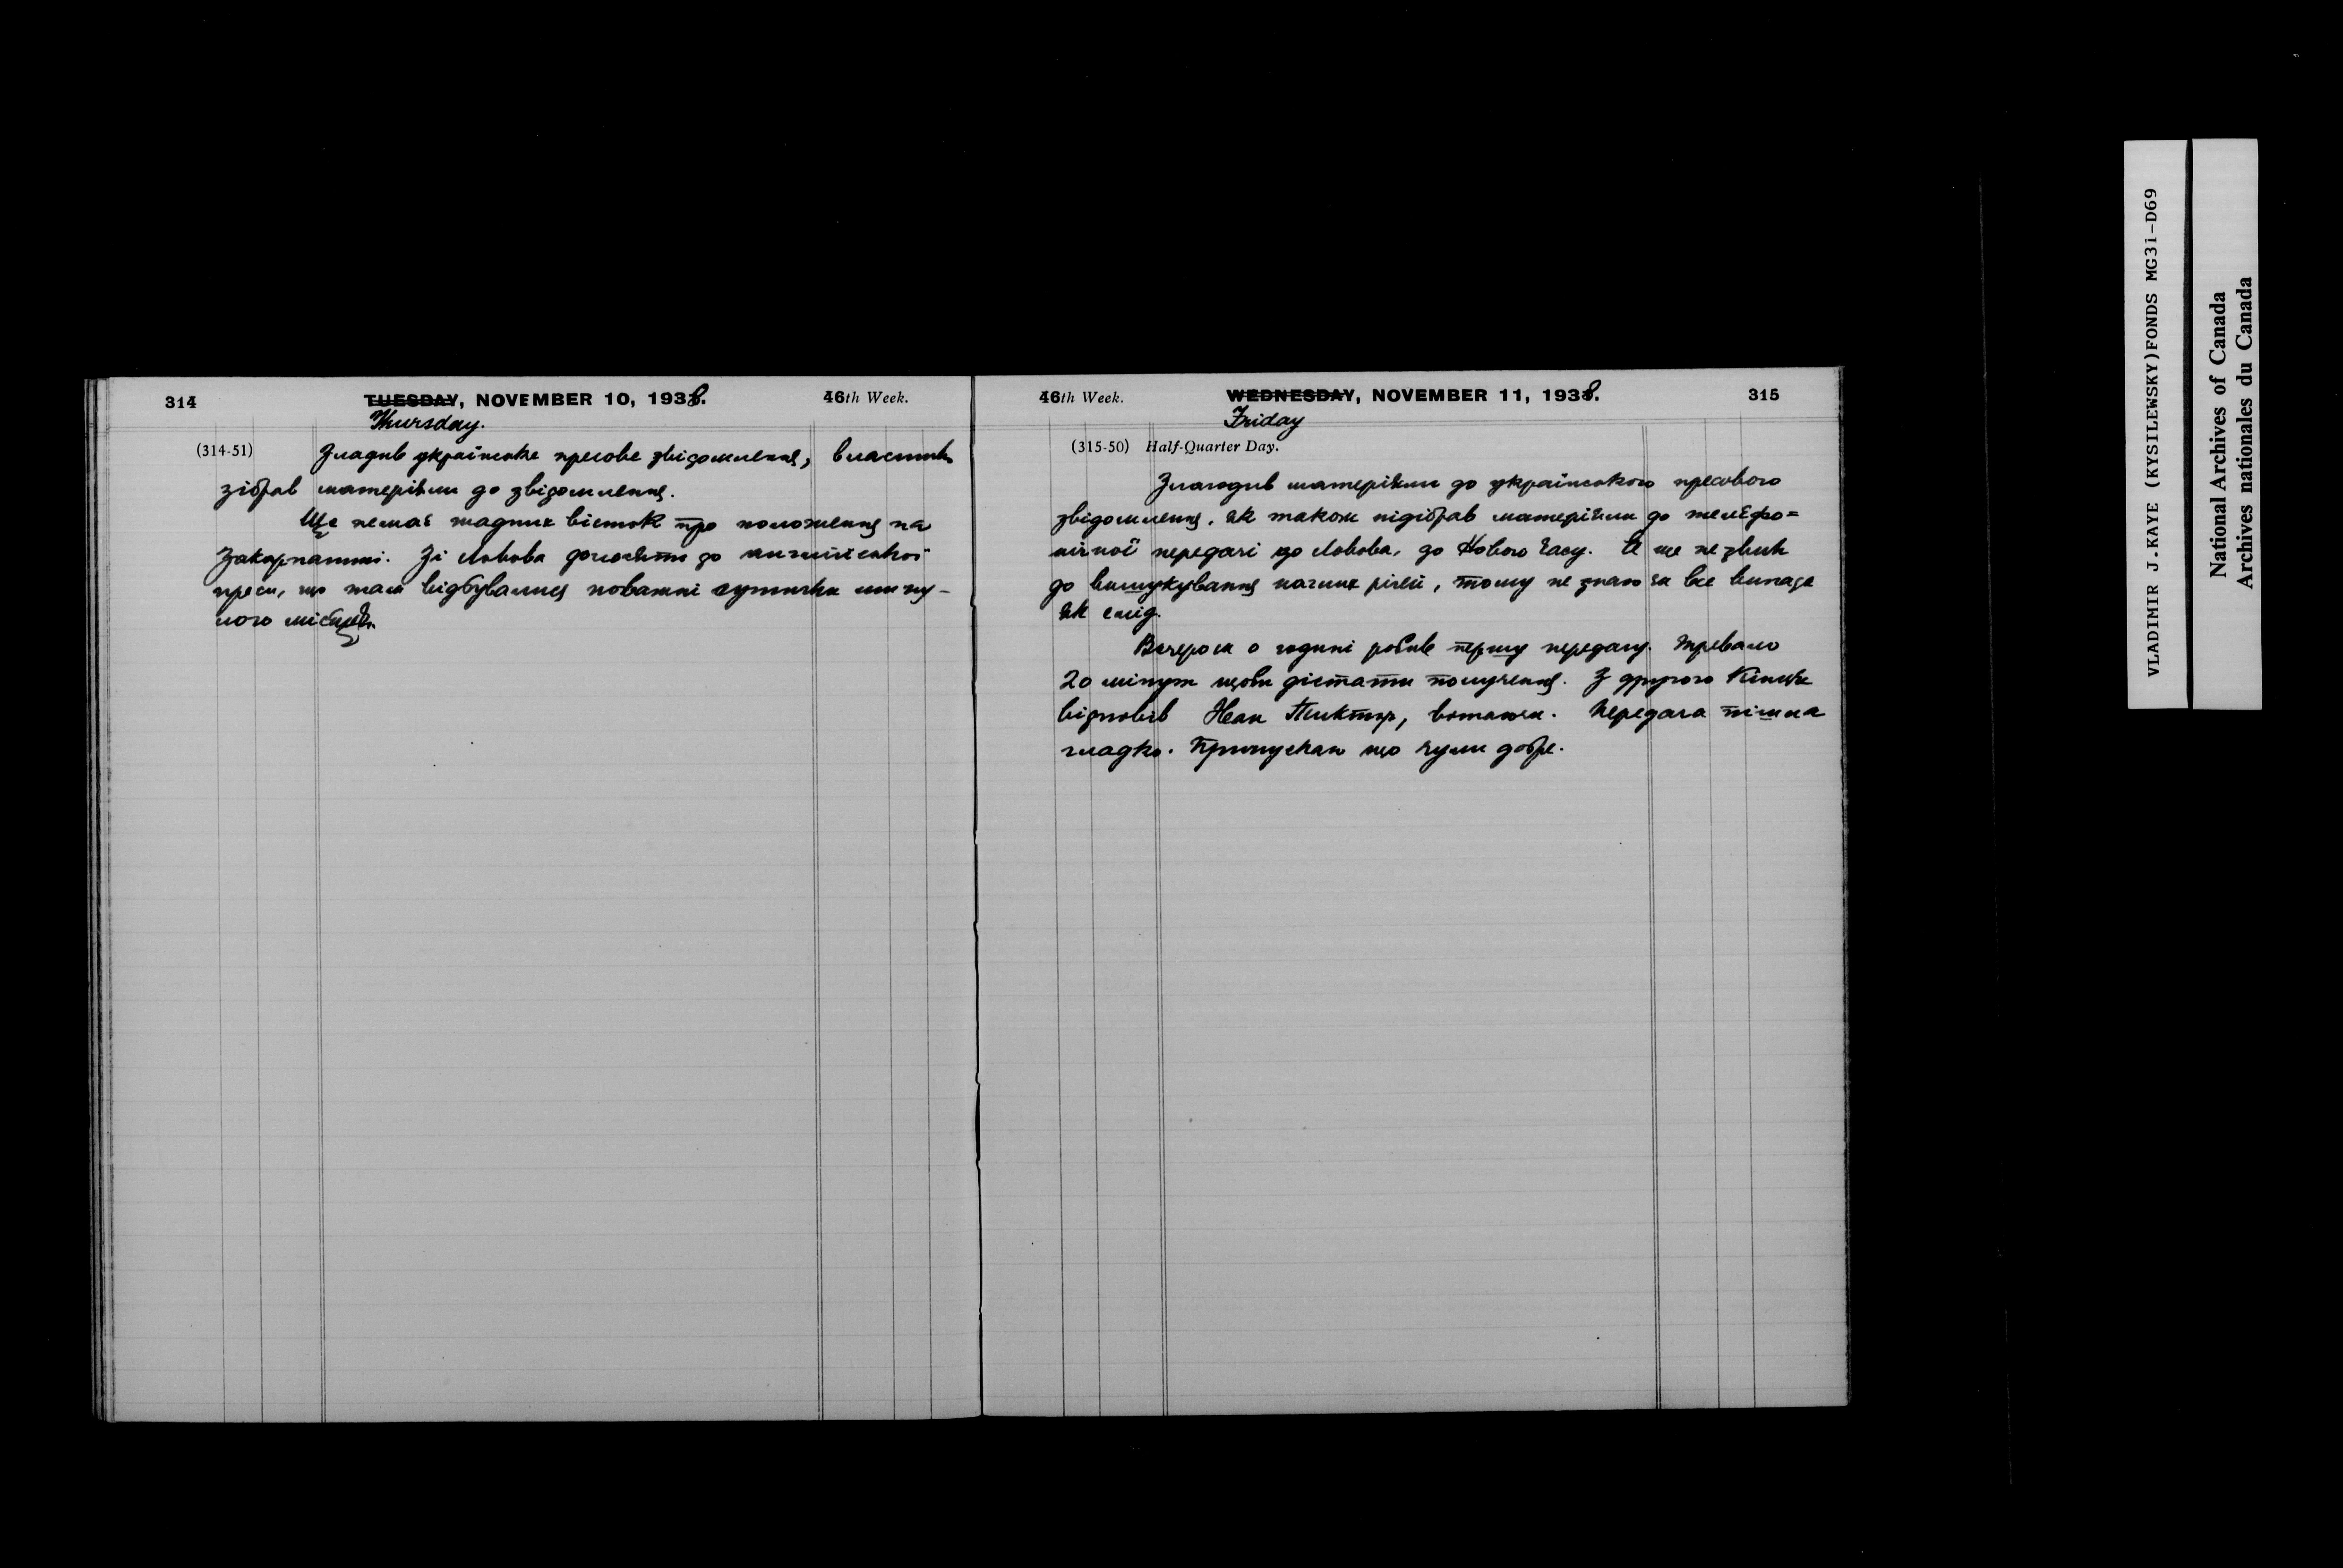 314
TUESDAY, NOVEMBER 10, 1938.
46th Week.
Thursday.
(314-51)
Зладив українське пресове звідомлення, властиво
зібрав матеріяли до звідомлення.
Ще немає жадних вісток про положення на
Закарпаттю. Зі Львова доносять до англійської
преси, що там відбувалися поважні сутички мину-
лого місяця.
46th Week.
WEDNESDAY, NOVEMBER 11, 1938.
315
Friday
(315-50) Half-Quarter Day.
Злагодив матеріяли до українського пресового
звідомлення, як також підібрав матеріяли до телєфо=
нічної передачі до Львова, до Нового Часу. Я ще не звик
до вишукування наших річей, тому не знаю чи все випаде
як слід.
Вечером о годині робив першу передачу. Тревало
20 мінут щоби дістати получення. З другого кінця
відповів Іван Тиктор, витаючи. Передача пішла
гладко. Припускаю що чули добре.
VLADIMIR J.KAYE (KYSILEWSKY)FONDS MG31-D69
National Archives of Canada
Archives nationales du Canada